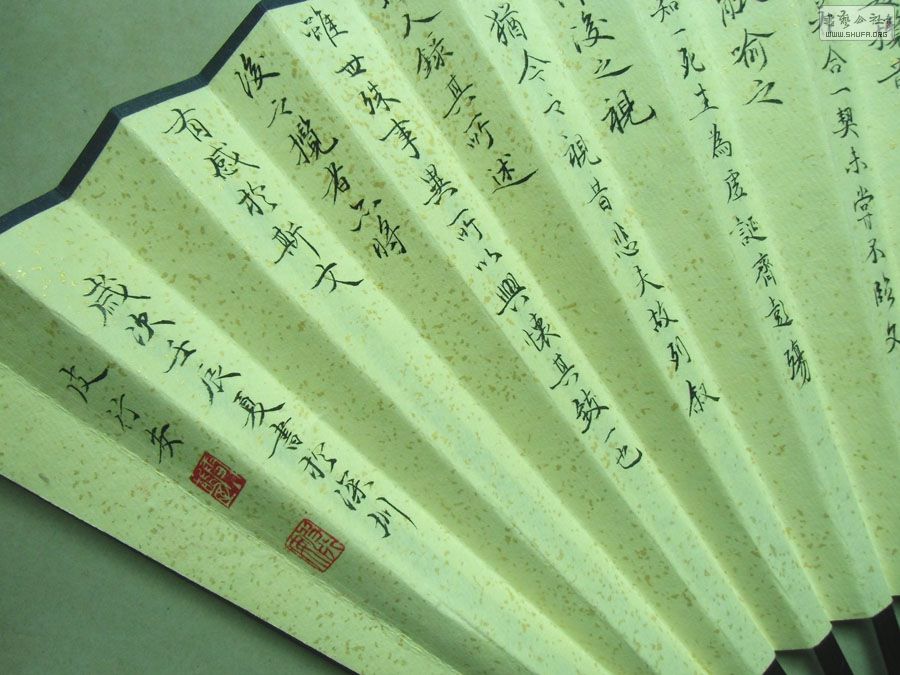 合一契未嘗不臨文
能喻之
知一死生為虛誕齊彭殤
後之視
猶今之視昔悲夫故列叙
人錄其所述
雖世殊事異所以興懷其致一也
後之攬者亦將
有感於斯文
歲次壬辰夏書於深圳
皮
WWW.SHUFA.ORG